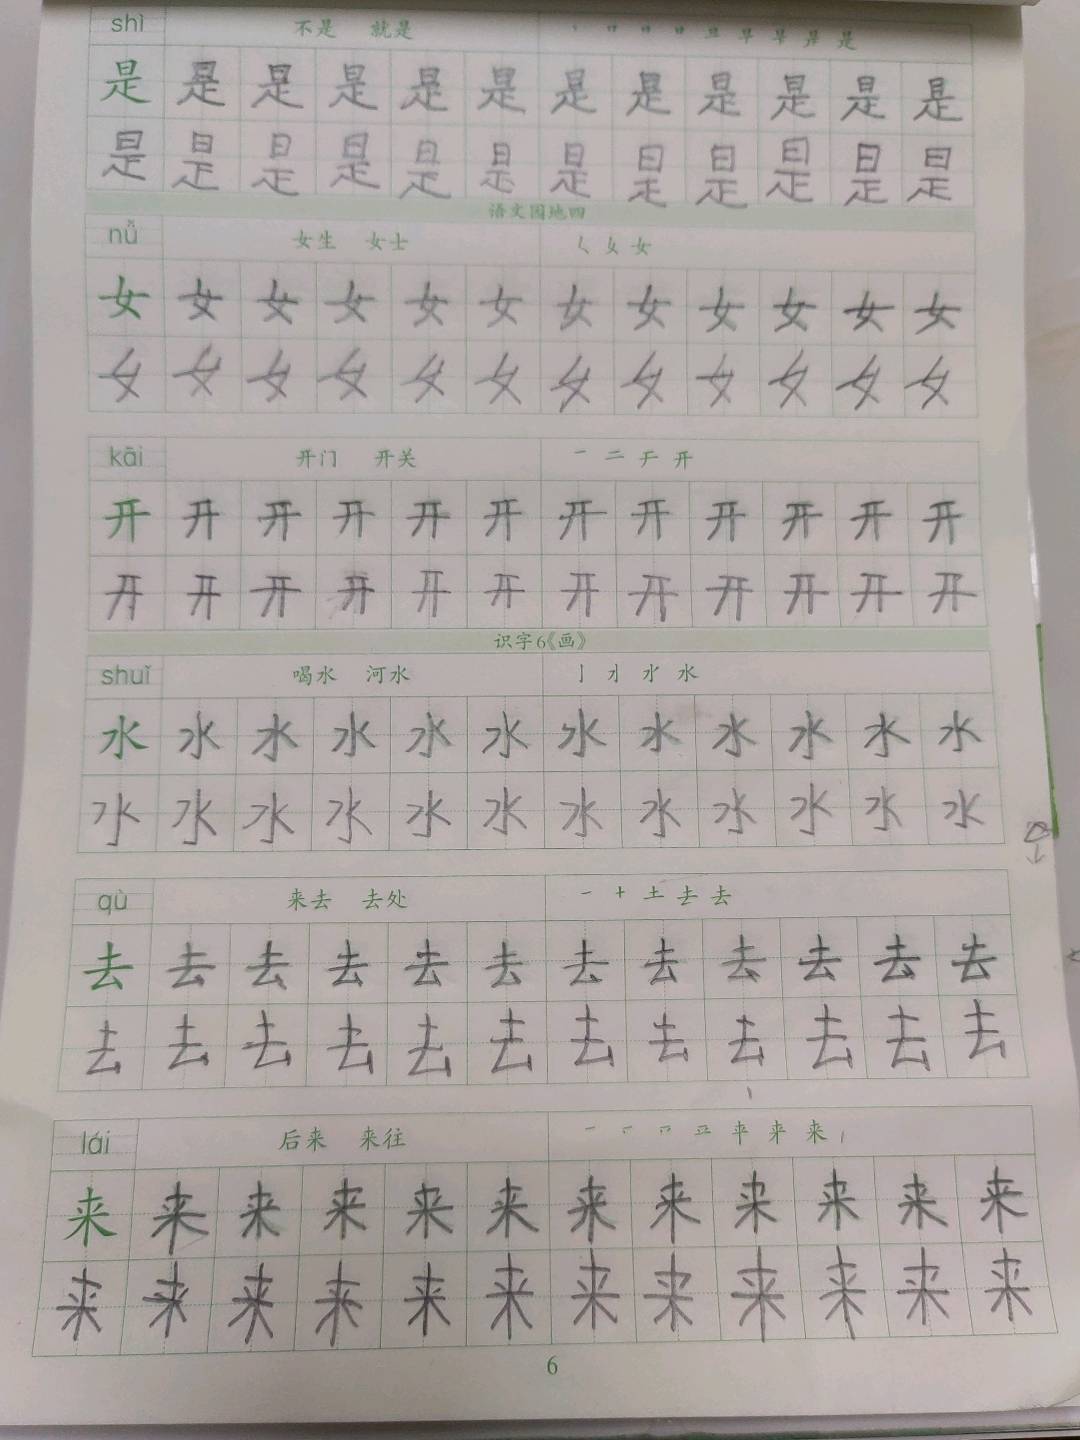 shì 不是 就是 丶 口 日 日 旦 早 早 昰 是
是 是 是 是 是 是 是 是 是 是 是 是
是 是 是 是 是 是 是 是 是 是 是 是
语文园地四
nǚ 女生 女士 ㄑ 女 女
女 女 女 女 女 女 女 女 女 女 女 女
女 女 女 女 女 女 女 女 女 女 女 女
kāi 开门 开关 一 二 于 开
开 开 开 开 开 开 开 开 开 开 开 开
开 开 开 开 开 开 开 开 开 开 开 开
识字6《画》
shuǐ 喝水 河水 亅 水
水 水 水 水 水 水 水 水 水 水 水 水
水 水 水 水 水 水 水 水 水 水 水 水
qù 来去 去处 一 十 土 去 去
去 去 去 去 去 去 去 去 去 去 去 去
去 去 去 去 去 去 去 去 去 去 去 去
lái 后来 来往 一 来
来 来 来 来 来 来 来 来 来 来 来 来
来 来 来 来 来 来 来 来 来 来 来 来
6